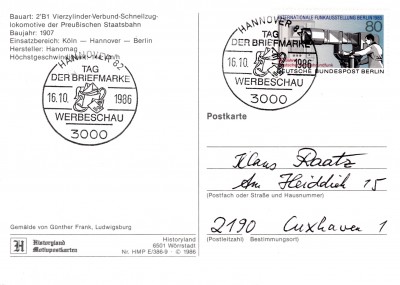 Bauart: 2'B1 Vierzylinder-Verbund-Schnellzug-
lokomotive der Preußischen Staatsbahn
Baujahr: 1907
Einsatzbereich: Köln — Hannover — Berlin
Hersteller: Hanomag
HANNOVER 82
TAG
DER BRIEFMARKE
16.10. 1986
WERBESCHAU
3000
HANNOVER 82
TAG
DER BRIEFMARKE
16.10. 1986
WERBESCHAU
3000
INTERNATIONALE FUNKAUSSTELLUNG BERLIN 1985
80
DEUTSCHE BUNDESPOST BERLIN
Postkarte
Klaus Raatz
Am Heiddiek 15
(Postfach oder Straße und Hausnummer)
2190 Cuxhaven 1
(Postleitzahl) (Bestimmungsort)
Gemälde von Günther Frank, Ludwigsburg
H
Historyland
Motivpostkarten
Historyland
6501 Wörrstadt
Nr. HMP E/386-9 · © 1986